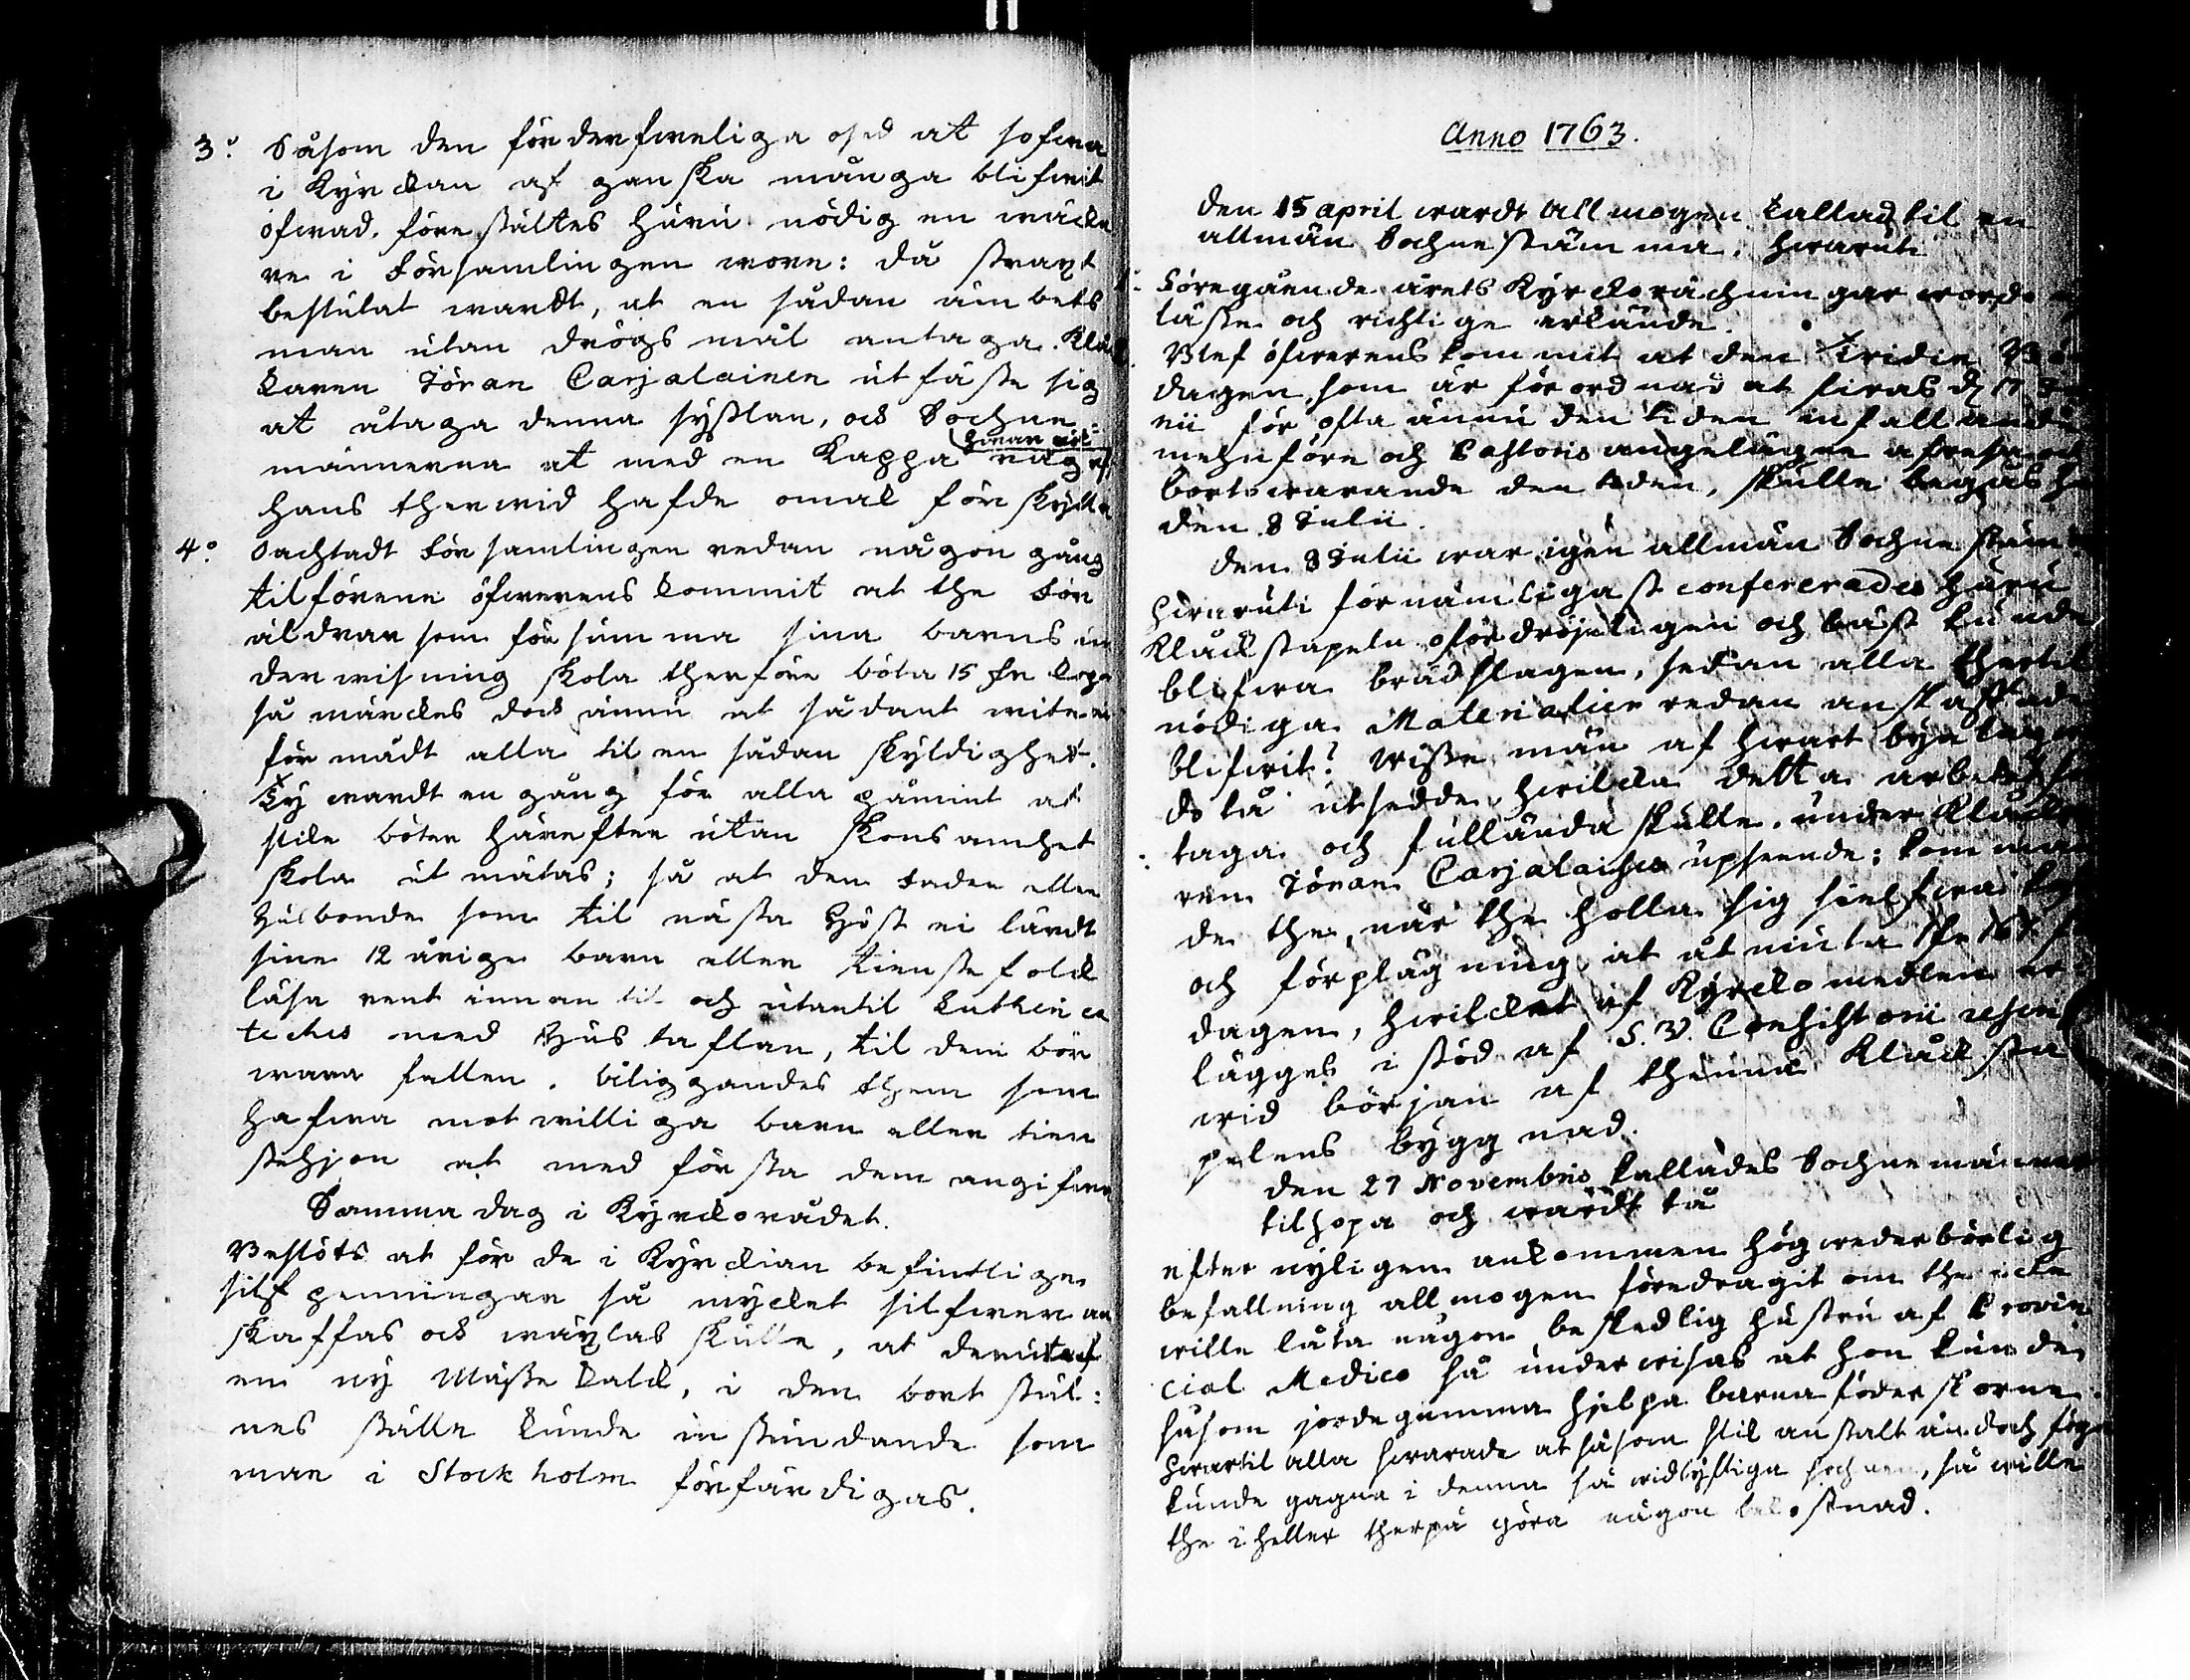 3:o Såsom den förderfweliga osed at sofwa
i Kyrckan af ganska många blifwit
öfwad, förestältes huru nödig en wäcka
re i Församlingen wore: då straxt
beslutat wardt, at en sådan ämbets
man utan drögsmål antaga. Kläc
karen Jöran Carjalainen utfäste sig
at åtaga denna sysslan, ock Sochne
männerna at med en Kappa hwar rök råg
hans therwid hafde omak förskylla
4:o Oachtadt Församlingen redan någon gång
tilförene öfwerens kommit at the För
äldrar som försumma sina barns un
derwisning skola therföre böta 15 kop
så märckes dock ännu at sådant wite ei
förmådt alla til en sådan skyldighet.
Ty wardt en gång för alla påmint at
slike böter häreftter utan skonsamhet
skola utmätas; så at den Fader eller
Husbonde som til nästa Höst ei lärdt
sine 12 årige barn eller tienstefolck
läsa rent innan til och utantil Lutheri ca
teches med Hustaflan, til dem bör
wara fallen. åliggandes them som
hafwa motwilliga barn eller tien
stehjon at med första dem angifwa
Samma dag i Kyrckorådet.
Beslöts at för de i Kyrckian befintlige
silf penningar så myckt silfwer an
skaffas ock wäxlas skulle, at derutaf
en ny Mässe kalck, i den bort stul:
nes ställe kunde instundande som
mar i Stockholm förfärdigas.
Anno 1763.
den 15 april wardt allmogen kallad til en
allmän Sochnestämma, hwaruti
Föregående årets Kyrckorächningar word
läste och richtige erkände.
Blef öfwerenskommit at den tridie Bö
dagen, som är förordnad at firas d 17 Ju
nii för ofta ännu den tiden infallande
mehnföre och Pastoris angelägne afresa och
bortowarande den tiden, skulle begås
den 8 Julii.
Den 8 Julii war igen allmän Sochnestäm
hwaruti förnämligast confererades huru
Kläckstapeln ofördröjeligen och bäst kunde
blifwa brädslagen, sedan alla thertil
nödiga Materialier redan anskaffade
blifwit? Wisse män af hwart byalag
då utsedde, hwilcka detta arbetet
taga och fullända skulle, under Kläcka
ren Jöran Carjalaises upseende; komman
de the, när the holla sig sielfwa
och förplägning at åtniuta
dagen, hwilcket af Kyrcko medlen er
lägges i stöd af S. V. Consistorii
wid början af thenna Kläcksta
pelens byggnad.
Den 27 Novembris kallades Sochnemänner
tilhopa och wardt tå
efter nyligen ankommen högwederbörlig
befallning allmogen föredragit om the icke
wille låta någon beskedlig hustru af Provin
cial Medico så underwisas at hon kunde
såsom jordegumma hjelpa barnaföderskorne.
Hwartil alla swarade at såsom slik anstalt ändoch föga
kunde gagna i denna så widlyftiga sochnen, så wille
the i heller therpå göra någon bekostnad.